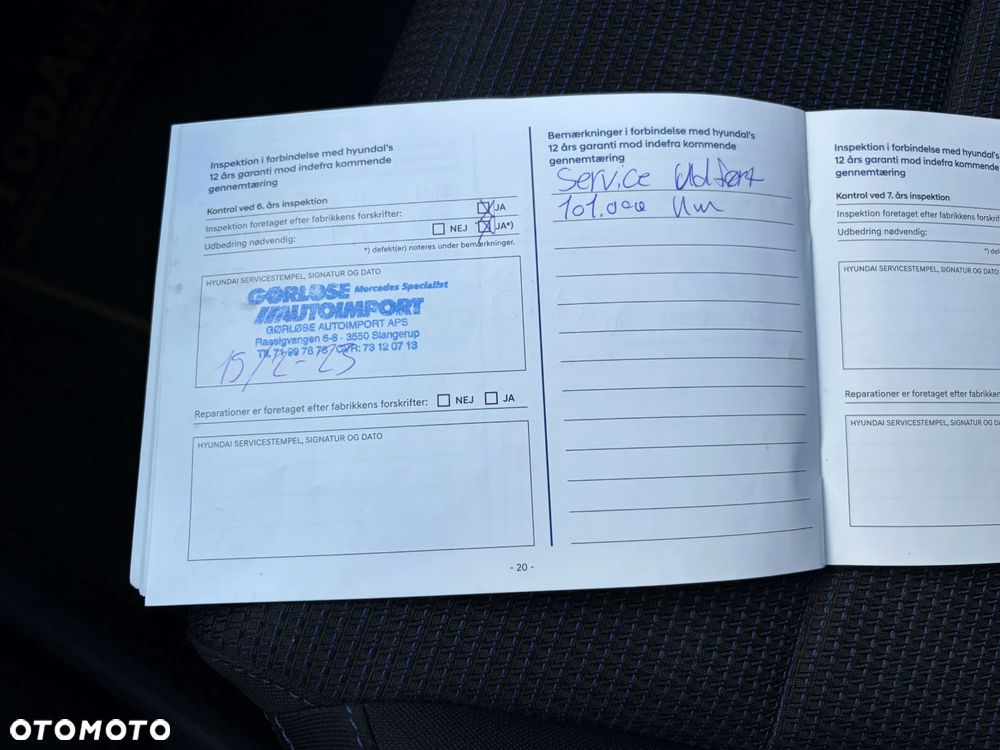 Inspektion i forbindelse med hyundai's
12 års garanti mod indefra kommende
gennemtæring
Kontrol ved 6. års inspektion
Inspektion foretaget efter fabrikkens forskrifter: JA
Udbedring nødvendig: NEJ JA*)
*) defekt(er) noteres under bemærkninger.
HYUNDAI SERVICESTEMPEL, SIGNATUR OG DATO
GØRLØSE Mercedes Specialist
AUTOIMPORT
GØRLØSE AUTOIMPORT APS
Rassigvangen 6-8 - 3550 Slangerup
Tlf. 71 99 78 78 CVR: 73 12 07 13
15/2-23
Reparationer er foretaget efter fabrikkens forskrifter: NEJ JA
HYUNDAI SERVICESTEMPEL, SIGNATUR OG DATO
- 20 -
Bemærkninger i forbindelse med hyundai's
12 års garanti mod indefra kommende
gennemtæring
Service Udført
101.000 Km
Inspektion i forbindelse med hyundai's
12 års garanti mod indefra kommende
gennemtæring
Kontrol ved 7. års inspektion
Inspektion foretaget efter fabrikkens
Udbedring nødvendig:
HYUNDAI SERVICESTEMPEL, SIGNATUR OG
Reparationer er foretaget efter fabrikkens
HYUNDAI SERVICESTEMPEL, SIGNATUR OG
OTOMOTO